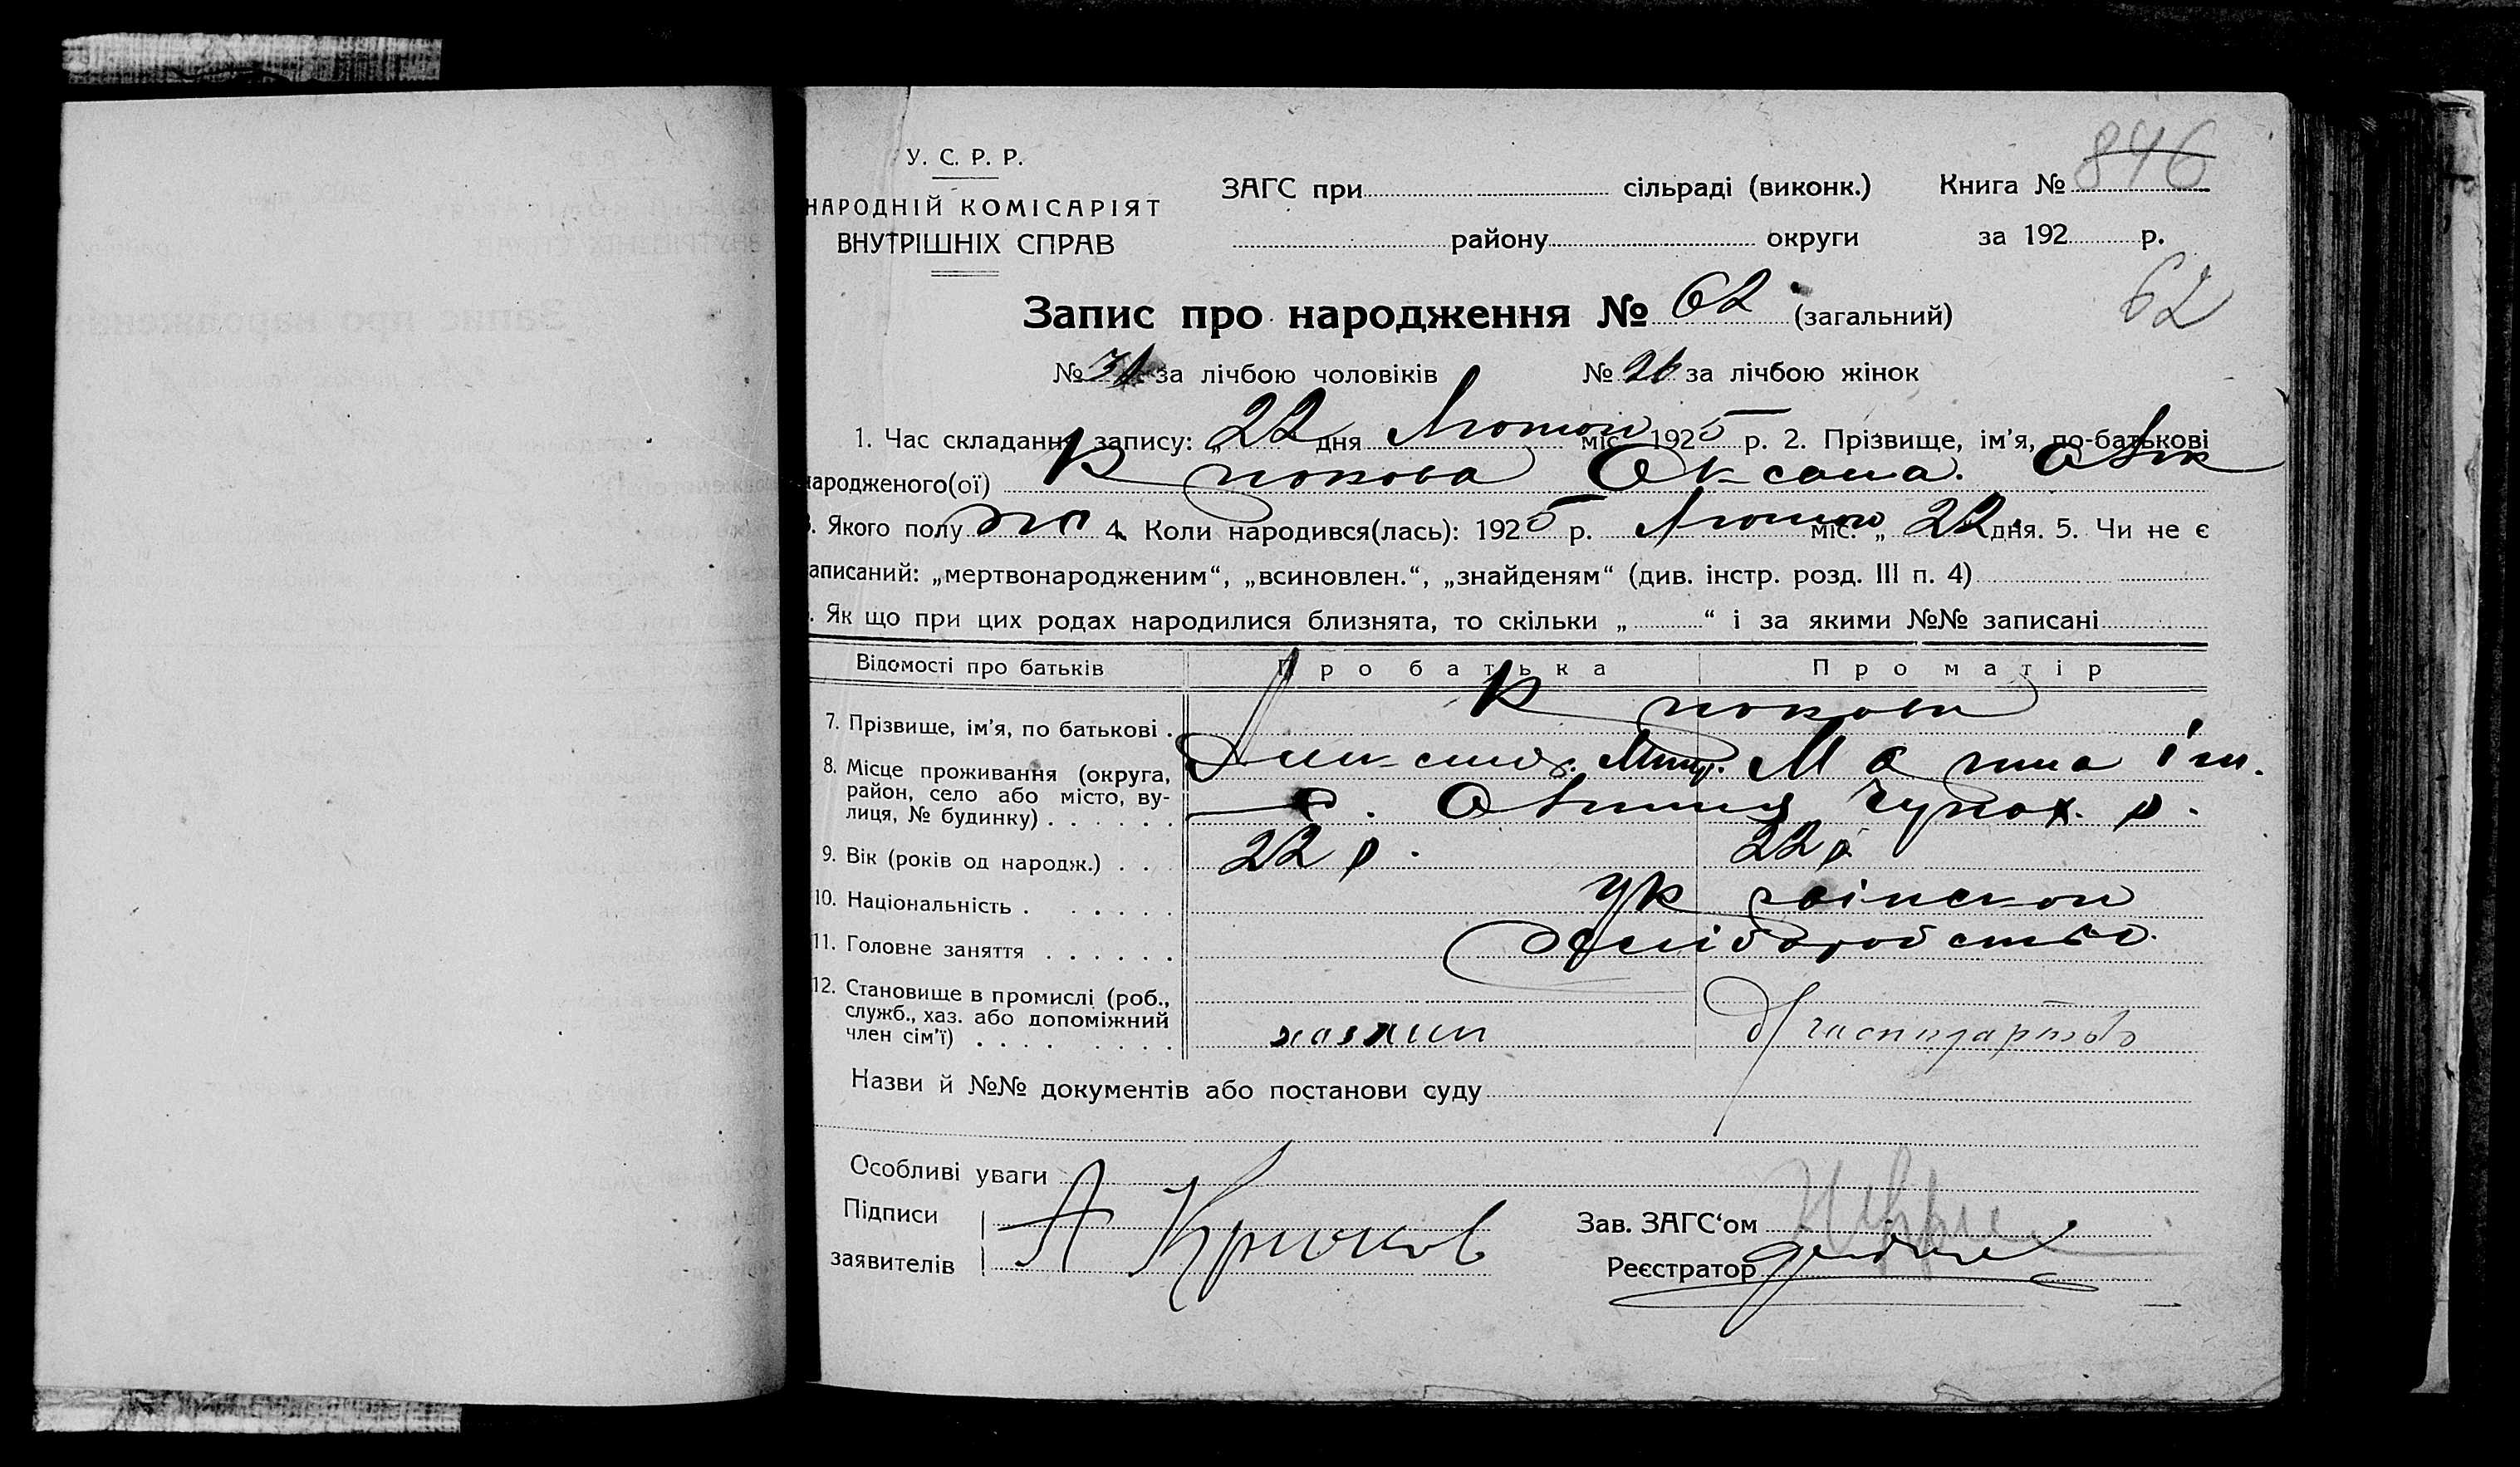 846
У. С. Р. Р.
НАРОДНІЙ КОМІСАРІЯТ
ВНУТРІШНІХ СПРАВ
ЗАГС при сільраді (виконк.) Книга №
району округи за 192 р.
62
Запис про народження № 62 (загальний)
№ за лічбою чоловіків № 26 за лічбою жінок
1. Час складання запису: „22 дня Лютого міс. 1925 р. 2. Прізвище, ім'я, по-батькові
народженого(ої) Крюкова Оксана.
3. Якого полу жін 4. Коли народився(лась): 1925 р. Лютого міс. „22 дня. 5. Чи не є
записаний: „мертвонародженим“, „всиновлен.“, „знайденям“ (див. інстр. розд. III п. 4)
6. Як що при цих родах народилися близнята, то скільки „ “ і за якими №№ записані
Відомості про батьків Про батька Про матір
7. Прізвище, ім'я, по батькові . Крюкови
8. Місце проживання (округа,
район, село або місто, ву-
лиця, № будинку) . . . . . .
9. Вік (років од народж.) . . . 22 р. 22 р
10. Національність . . . . . . Українською
11. Головне заняття . . . . . . Хліборобство.
12. Становище в промислі (роб.,
служб., хаз. або допоміжний
член сім'ї) . . . . . . . . хазяин
Назви й №№ документів або постанови суду
Особливі уваги
Підписи А Крюков Зав. ЗАГС‘ом
заявителів Реєстратор